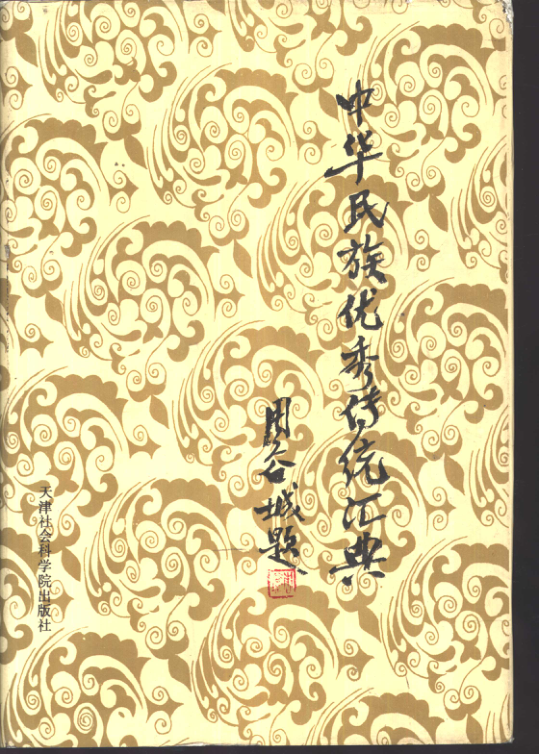 中华民族优秀传统汇典
周谷城题
天津社会科学院出版社